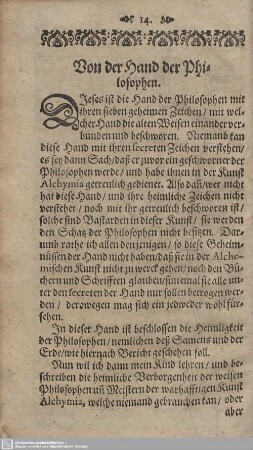 14.
Von der Hand der Phi-
losophen.
DJeses ist die Hand der Philosophen mit
ihren sieben geheimen Zeichen/ mit wel-
cher Hand die alten Weisen einander ver-
bunden und beschworen. Niemand kan
diese Hand mit ihren secreten Zeichen verstehen/
es sey dann Sach/ daß er zuvor ein geschworner der
Philosophen werde/ und habe ihnen in der Kunst
Alchymia getreulich gedienet. Also daß/ wer nicht
hat diese Hand/ und ihre heimliche Zeichen nicht
verstehet/ noch mit ihr getreulich beschworen ist/
solche sind Bastarden in dieser Kunst/ sie werden
den Schatz der Philosophen nicht besitzen. Dar-
umb rathe ich allen denjenigen/ so diese Geheim-
nüssen der Hand nicht haben/ daß sie in der Alche-
mischen Kunst nicht zu werck gehen/ noch den Bü-
chern und Schrifften glauben/ sintemal sie alle un-
ter den secreten der Hand nur sollen betrogen wer-
den/ derowegen mag sich ein jedweder wohl für-
sehen.
Jn dieser Hand ist beschlossen die Heimligkeit
der Philosophen/ nemlichen deß Samens und der
Erde/ wie hiernach Bericht geschehen soll.
Nun wil ich dann mein Kind lehren/ und be-
schreiben die heimliche Verborgenheit der weisen
Philosophen uñ Meistern der warhafftigen Kunst
Alchymia, welche niemand gebrauchen kan/ oder
aber